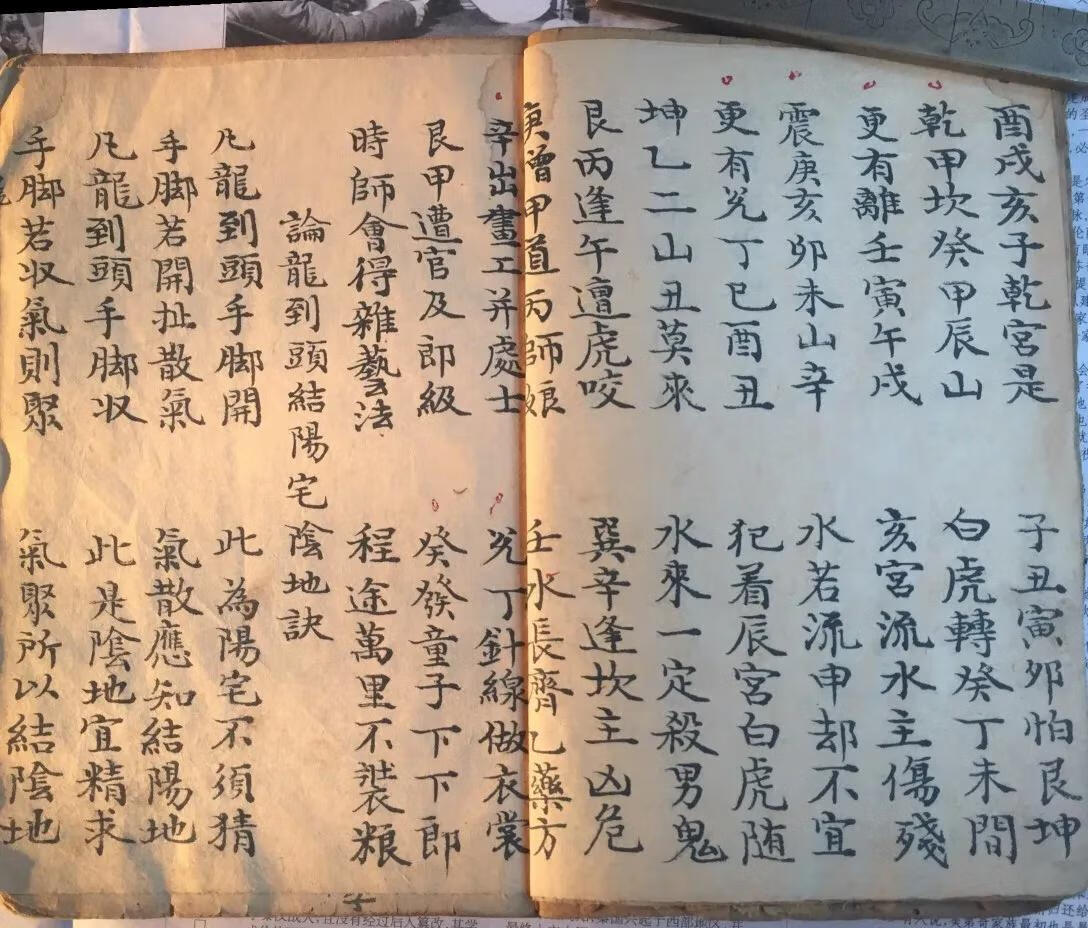 酉戌亥子乾宮是 子丑寅卯怕艮坤
乾甲坎癸甲辰山 白虎轉癸丁未間
更有離壬寅午戌 亥宮流水主傷殘
震庚亥卯未山辛 水若流申却不宜
更有兊丁巳酉丑 犯着辰宮白虎随
坤乙二山丑莫來 水來一定殺男鬼
艮丙逢午遭虎咬 巽辛逢坎主凶危
庚曾甲道丙師娘 壬水長齊乙藥方
辛出畫工并處士 兊丁針線做衣裳
艮甲遭官及郎級 癸發童子下下郎
時師會得雜藝法 程途萬里不裝粮
論龍到頭結陽宅陰地訣
凡龍到頭手脚開 此為陽宅不須猜
手脚若開扯散氣 氣散應知結陽地
凡龍到頭手脚収 此是陰地宜精求
手脚若収氣則聚 氣聚所以結陰地